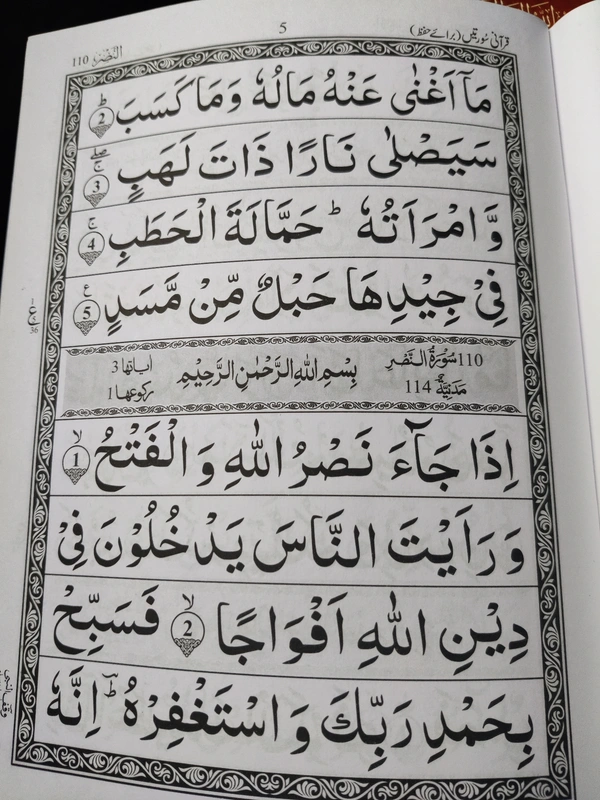 قرآنی سُورتیں (برائے حفظ) 5 النَّصْرُ 110
مَآ اَغْنٰى عَنْهُ مَالُهٗ وَمَا كَسَبَ ؕ 2
سَيَصْلٰى نَارًا ذَاتَ لَهَبٍ ۖۚ 3
وَّ امْرَاَتُهٗ ؕ حَمَّالَةَ الْحَطَبِ ۚ 4
فِىْ جِيْدِهَا حَبْلٌ مِّنْ مَّسَدٍ ع 5
110 سُوْرَةُ النَّصْرِ مَدَنِيَّةٌ 114 بِسْمِ اللهِ الرَّحْمٰنِ الرَّحِيْمِ اٰياتها 3 ركوعها 1
اِذَا جَآءَ نَصْرُ اللهِ وَ الْفَتْحُ ۙ 1
وَ رَاَيْتَ النَّاسَ يَدْخُلُوْنَ فِىْ
دِيْنِ اللهِ اَفْوَاجًا ۙ 2 فَسَبِّحْ
بِحَمْدِ رَبِّكَ وَ اسْتَغْفِرْهُ ؕ اِنَّهٗ